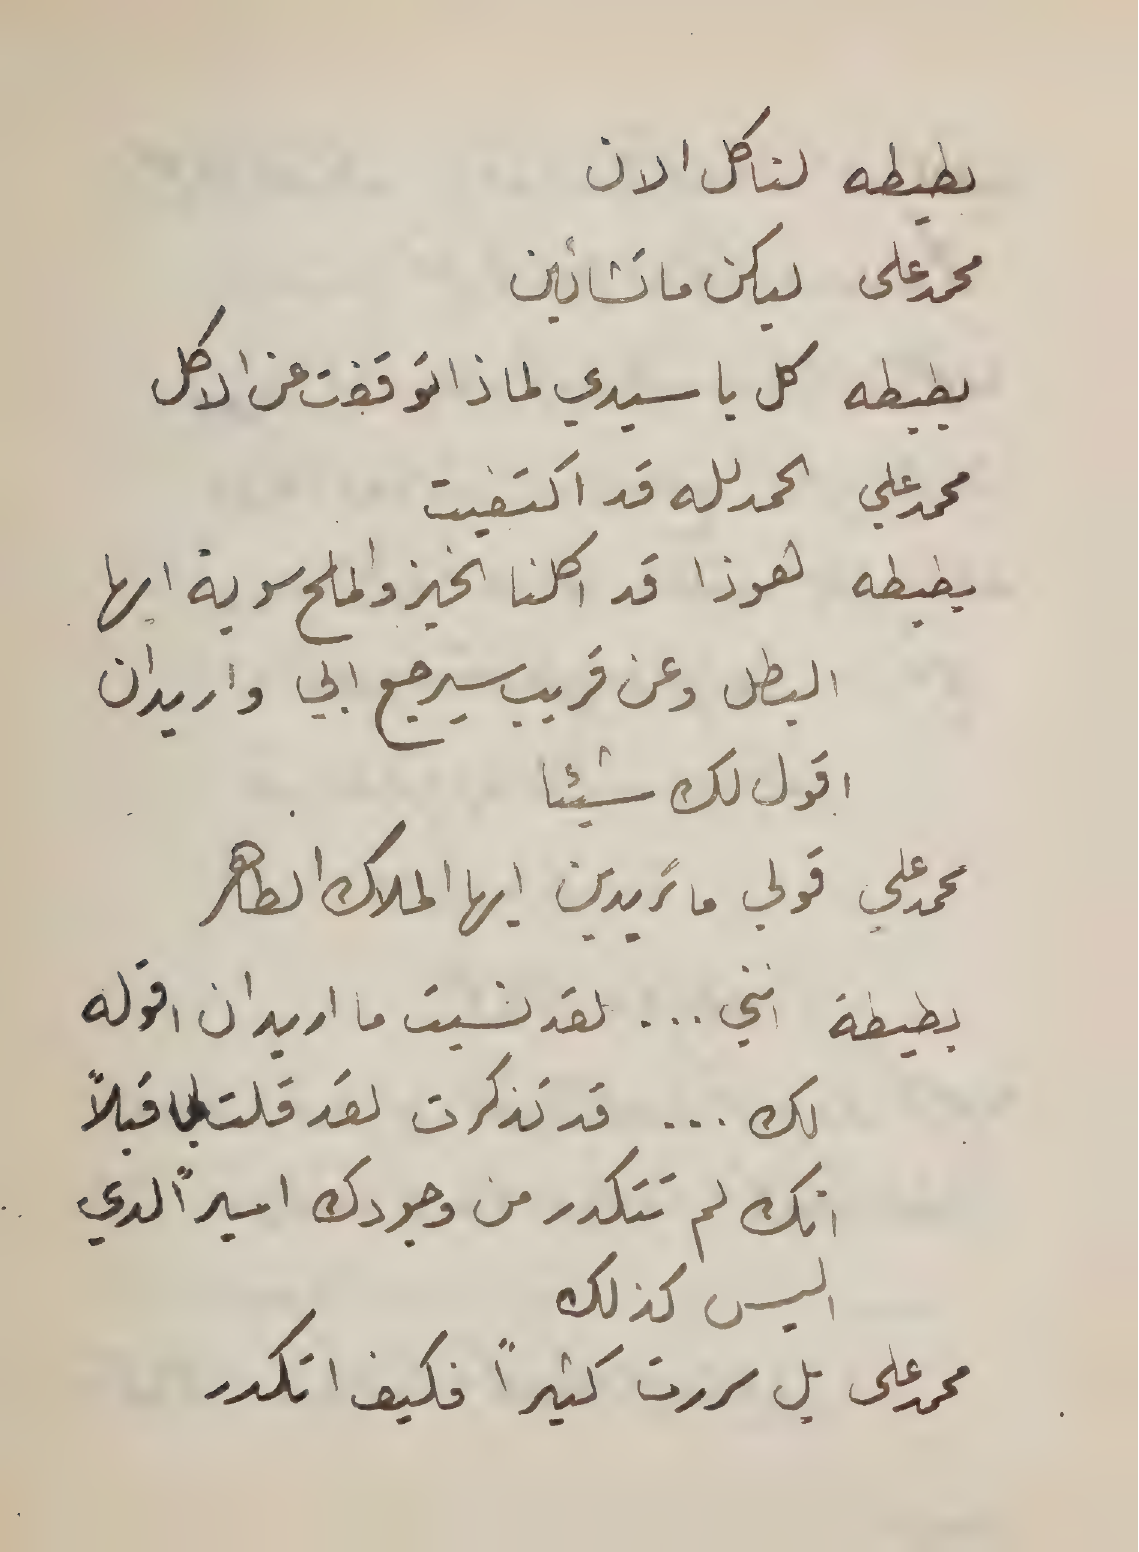 بطيطه لنأكل الان
محمد علي ليكن ما تشائين
بطيطه كل يا سيدي لماذا توقفت عن الاكل
محمد علي الحمد لله قد اكتفيت
بطيطه هوذا قد اكلنا الخبز والملح سوية ايها
البطل وعن قريب سيرجع ابي واريد ان
اقول لك شيئا
محمد علي قولي ما تريدين ايها الملاك الطاهر
بطيطة انني ... لقد نسيت ما اريد ان اقوله
لك ... قد تذكرت لقد قلت قبلاً
انك لم تتكدر من وجودك اسيراً لدي
اليس كذلك
محمد علي بل سررت كثيراً فكيف اتكدر